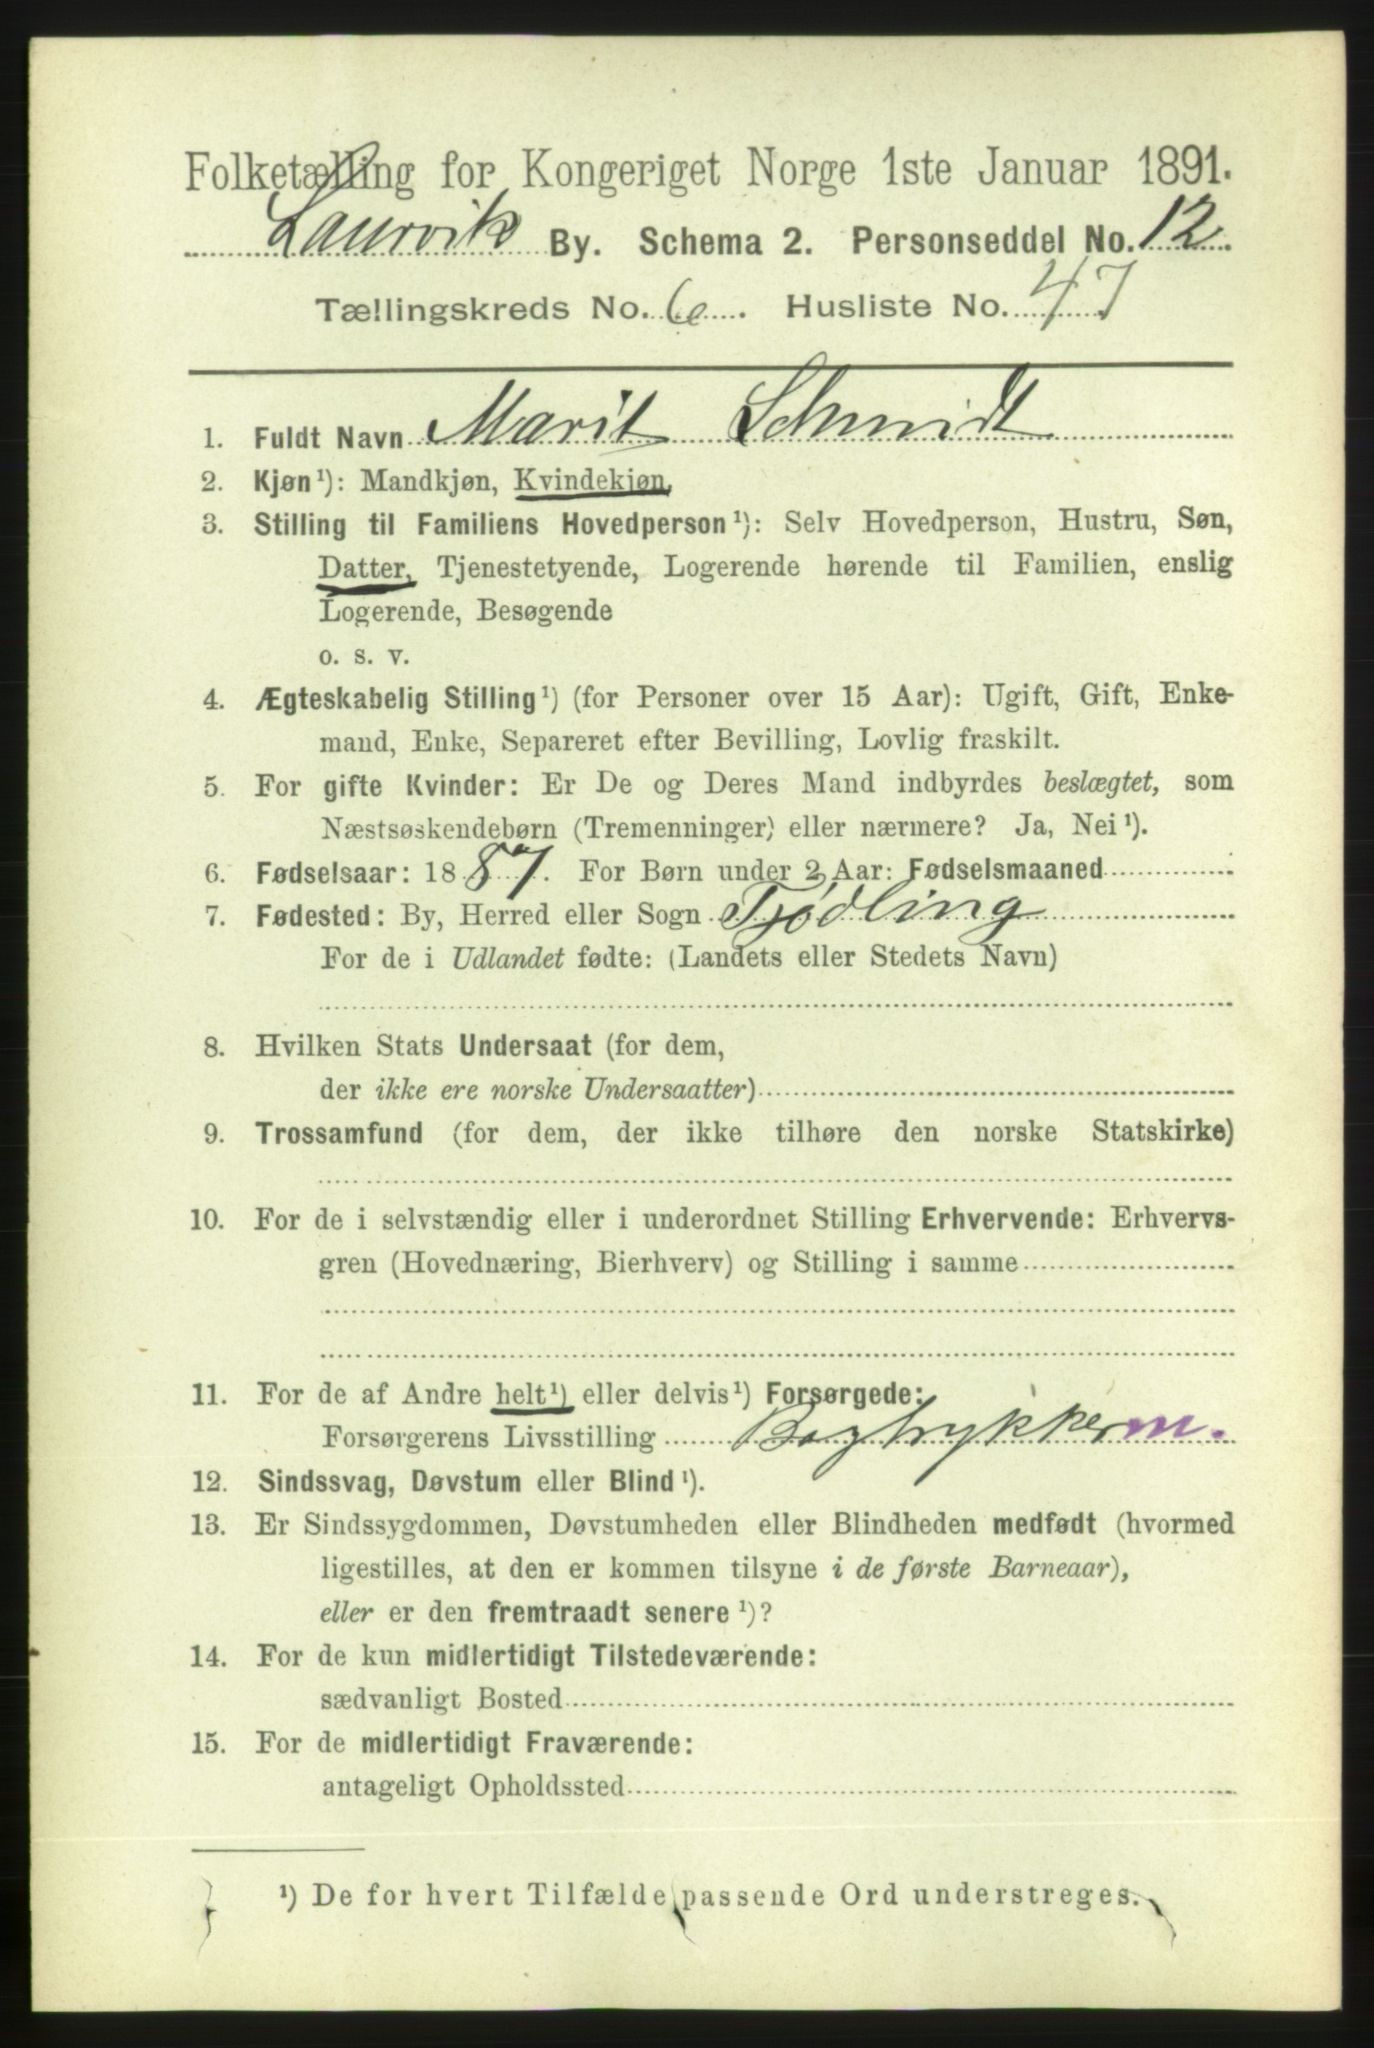 Folketælling for Kongeriget Norge 1ste Januar 1891.
Laurvik By. Schema 2. Personseddel No. 12.
Tællingskreds No. 6. Husliste No. 47
1. Fuldt Navn Marit Schmidt
2. Kjøn¹): Mandkjøn, Kvindekjøn,
3. Stilling til Familiens Hovedperson¹): Selv Hovedperson, Hustru, Søn,
Datter, Tjenestetyende, Logerende hørende til Familien, enslig
Logerende, Besøgende
o. s. v.
4. Ægteskabelig Stilling¹) (for Personer over 15 Aar): Ugift, Gift, Enke-
mand, Enke, Separeret efter Bevilling, Lovlig fraskilt.
5. For gifte Kvinder: Er De og Deres Mand indbyrdes beslægtet, som
Næstsøskendebørn (Tremenninger) eller nærmere? Ja, Nei¹).
6. Fødselsaar: 1887. For Børn under 2 Aar: Fødselsmaaned
7. Fødested: By, Herred eller Sogn Tjødling
For de i Udlandet fødte: (Landets eller Stedets Navn)
8. Hvilken Stats Undersaat (for dem,
der ikke ere norske Undersaatter)
9. Trossamfund (for dem, der ikke tilhøre den norske Statskirke)
10. For de i selvstændig eller i underordnet Stilling Erhvervende: Erhvervs-
gren (Hovednæring, Bierhverv) og Stilling i samme
11. For de af Andre helt¹) eller delvis¹) Forsørgede:
Forsørgerens Livsstilling Bogtrykkerm.
12. Sindssvag, Døvstum eller Blind¹).
13. Er Sindssygdommen, Døvstumheden eller Blindheden medfødt (hvormed
ligestilles, at den er kommen tilsyne i de første Barneaar),
eller er den fremtraadt senere¹)?
14. For de kun midlertidigt Tilstedeværende:
sædvanligt Bosted
15. For de midlertidigt Fraværende:
antageligt Opholdssted
¹) De for hvert Tilfælde passende Ord understreges.